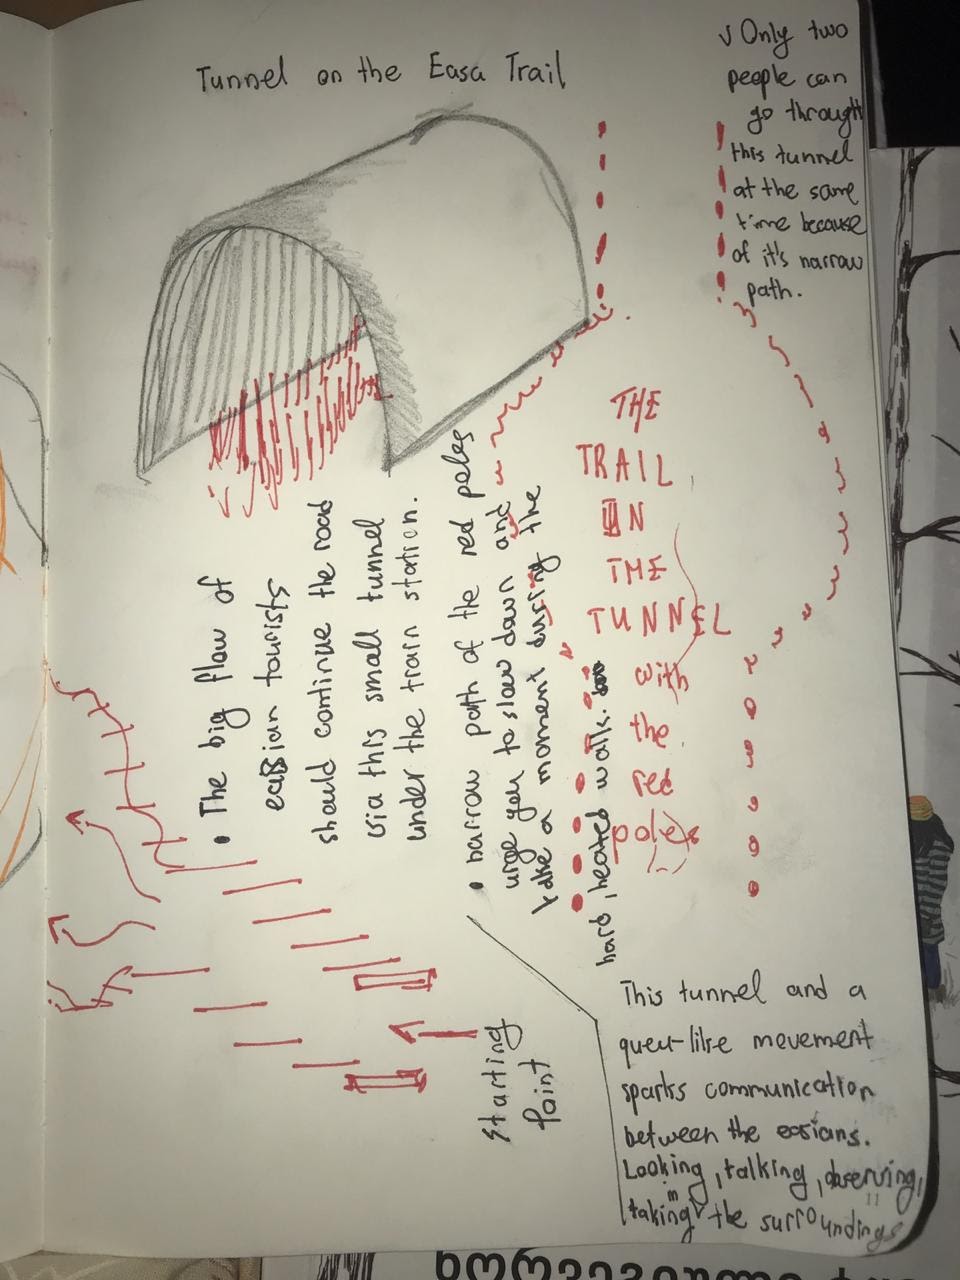 Tunnel on the Easa Trail
√ Only two
people can
go through
this tunnel
at the same
time because
of it's narrow
path.
THE
TRAIL
IN
THE
TUNNEL
with
the
red
poles
• The big flow of
easian tourists
should continue the road
via this small tunnel
under the train station.
• narrow path of the red poles
urge you to slow down and
take a moment during the
hard, heated walk.
Starting
Point
This tunnel and a
queu-like movement
sparks communication
between the easians.
Looking, talking, observing,
taking in the surroundings
ხორვეგიული